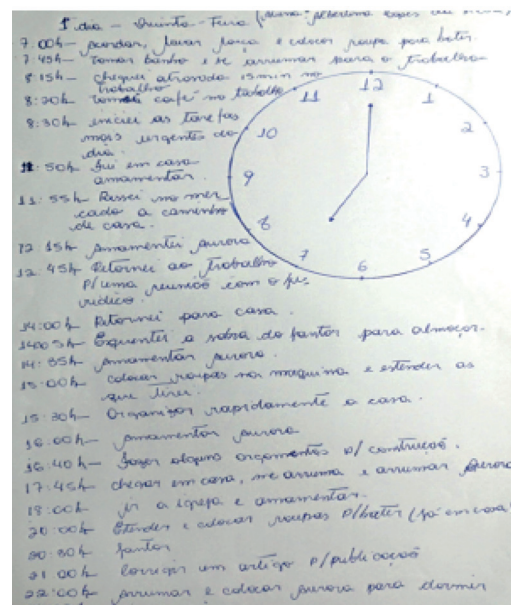 1º dia – Quinta-Feira (
7:00h – acordar, lavar louça e colocar roupa para bater.
7:45h – tomar banho e se arrumar para o trabalho
8:15h – cheguei atrasada 15min no
trabalho
8:20h tomei café no trabalho
8:30h iniciei as tarefas
mais urgentes do
dia.
11:50h fui em casa
amamentar.
11:55h Passei no mer
cado a caminho
de casa.
12 15h Amamentei Aurora
12:45h Retornei ao trabalho
p/ uma reunião com o ju
rídico.
14:00h Retornei para casa.
14:05h Esquentei a sobra do jantar para almoçar.
14:35h Amamentar Aurora.
15:00h colocar roupas na maquina e estender as
que tirei.
15:30h – Organizar rapidamente a casa.
16:00h – Amamentar Aurora
16:40h – Fazer alguns orçamentos p/ construção.
17:45h chegar em casa, me arrumar e arrumar Aurora
18:00h ir a igreja e amamentar.
20:00h Estender e colocar roupas p/bater (já em casa)
20:30h Jantar
21 00h Corrigir um artigo p/publicação
22:00h Arrumar e colocar Aurora para dormir
12
1
2
3
4
5
6
7
8
9
10
11